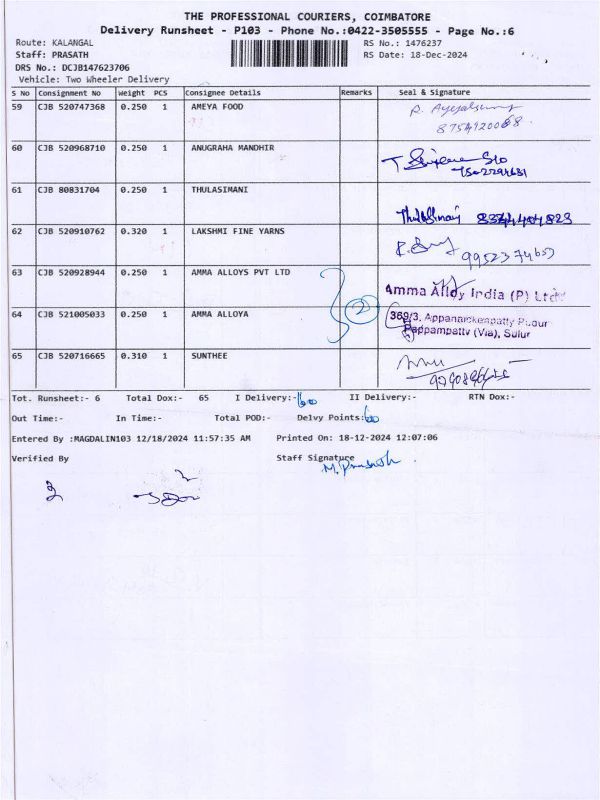 THE PROFESSIONAL COURIERS, COIMBATORE
Delivery Runsheet - P103 - Phone No.:0422-3505555 - Page No.:6
Route: KALANGAL RS No.: 1476237
Staff: PRASATH RS Date: 18-Dec-2024
DRS No.: DCJB147623706
Vehicle: Two Wheeler Delivery
S No Consignment No Weight PCS Consignee Details Remarks Seal & Signature
59 CJB 520747368 0.250 1 AMEYA FOOD
60 CJB 520968710 0.250 1 ANUGRAHA MANDHIR
61 CJB 80831704 0.250 1 THULASIMANI
Thulasimani
62 CJB 520910762 0.320 1 LAKSHMI FINE YARNS
9952374653
63 CJB 520928944 0.250 1 AMMA ALLOYS PVT LTD
Amma Alloy India (P) Ltd
2
64 CJB 521005033 0.250 1 AMMA ALLOYA
369/3, Appanaickenpatty Pudur
Pappampatty (Via), Sulur
65 CJB 520716665 0.310 1 SUNTHEE
Tot. Runsheet:- 6 Total Dox:- 65 I Delivery:- 60 II Delivery:- RTN Dox:-
Out Time:- In Time:- Total POD:- Delvy Points: 60
Entered By :MAGDALIN103 12/18/2024 11:57:35 AM Printed On: 18-12-2024 12:07:06
Verified By Staff Signature
M. Prasath